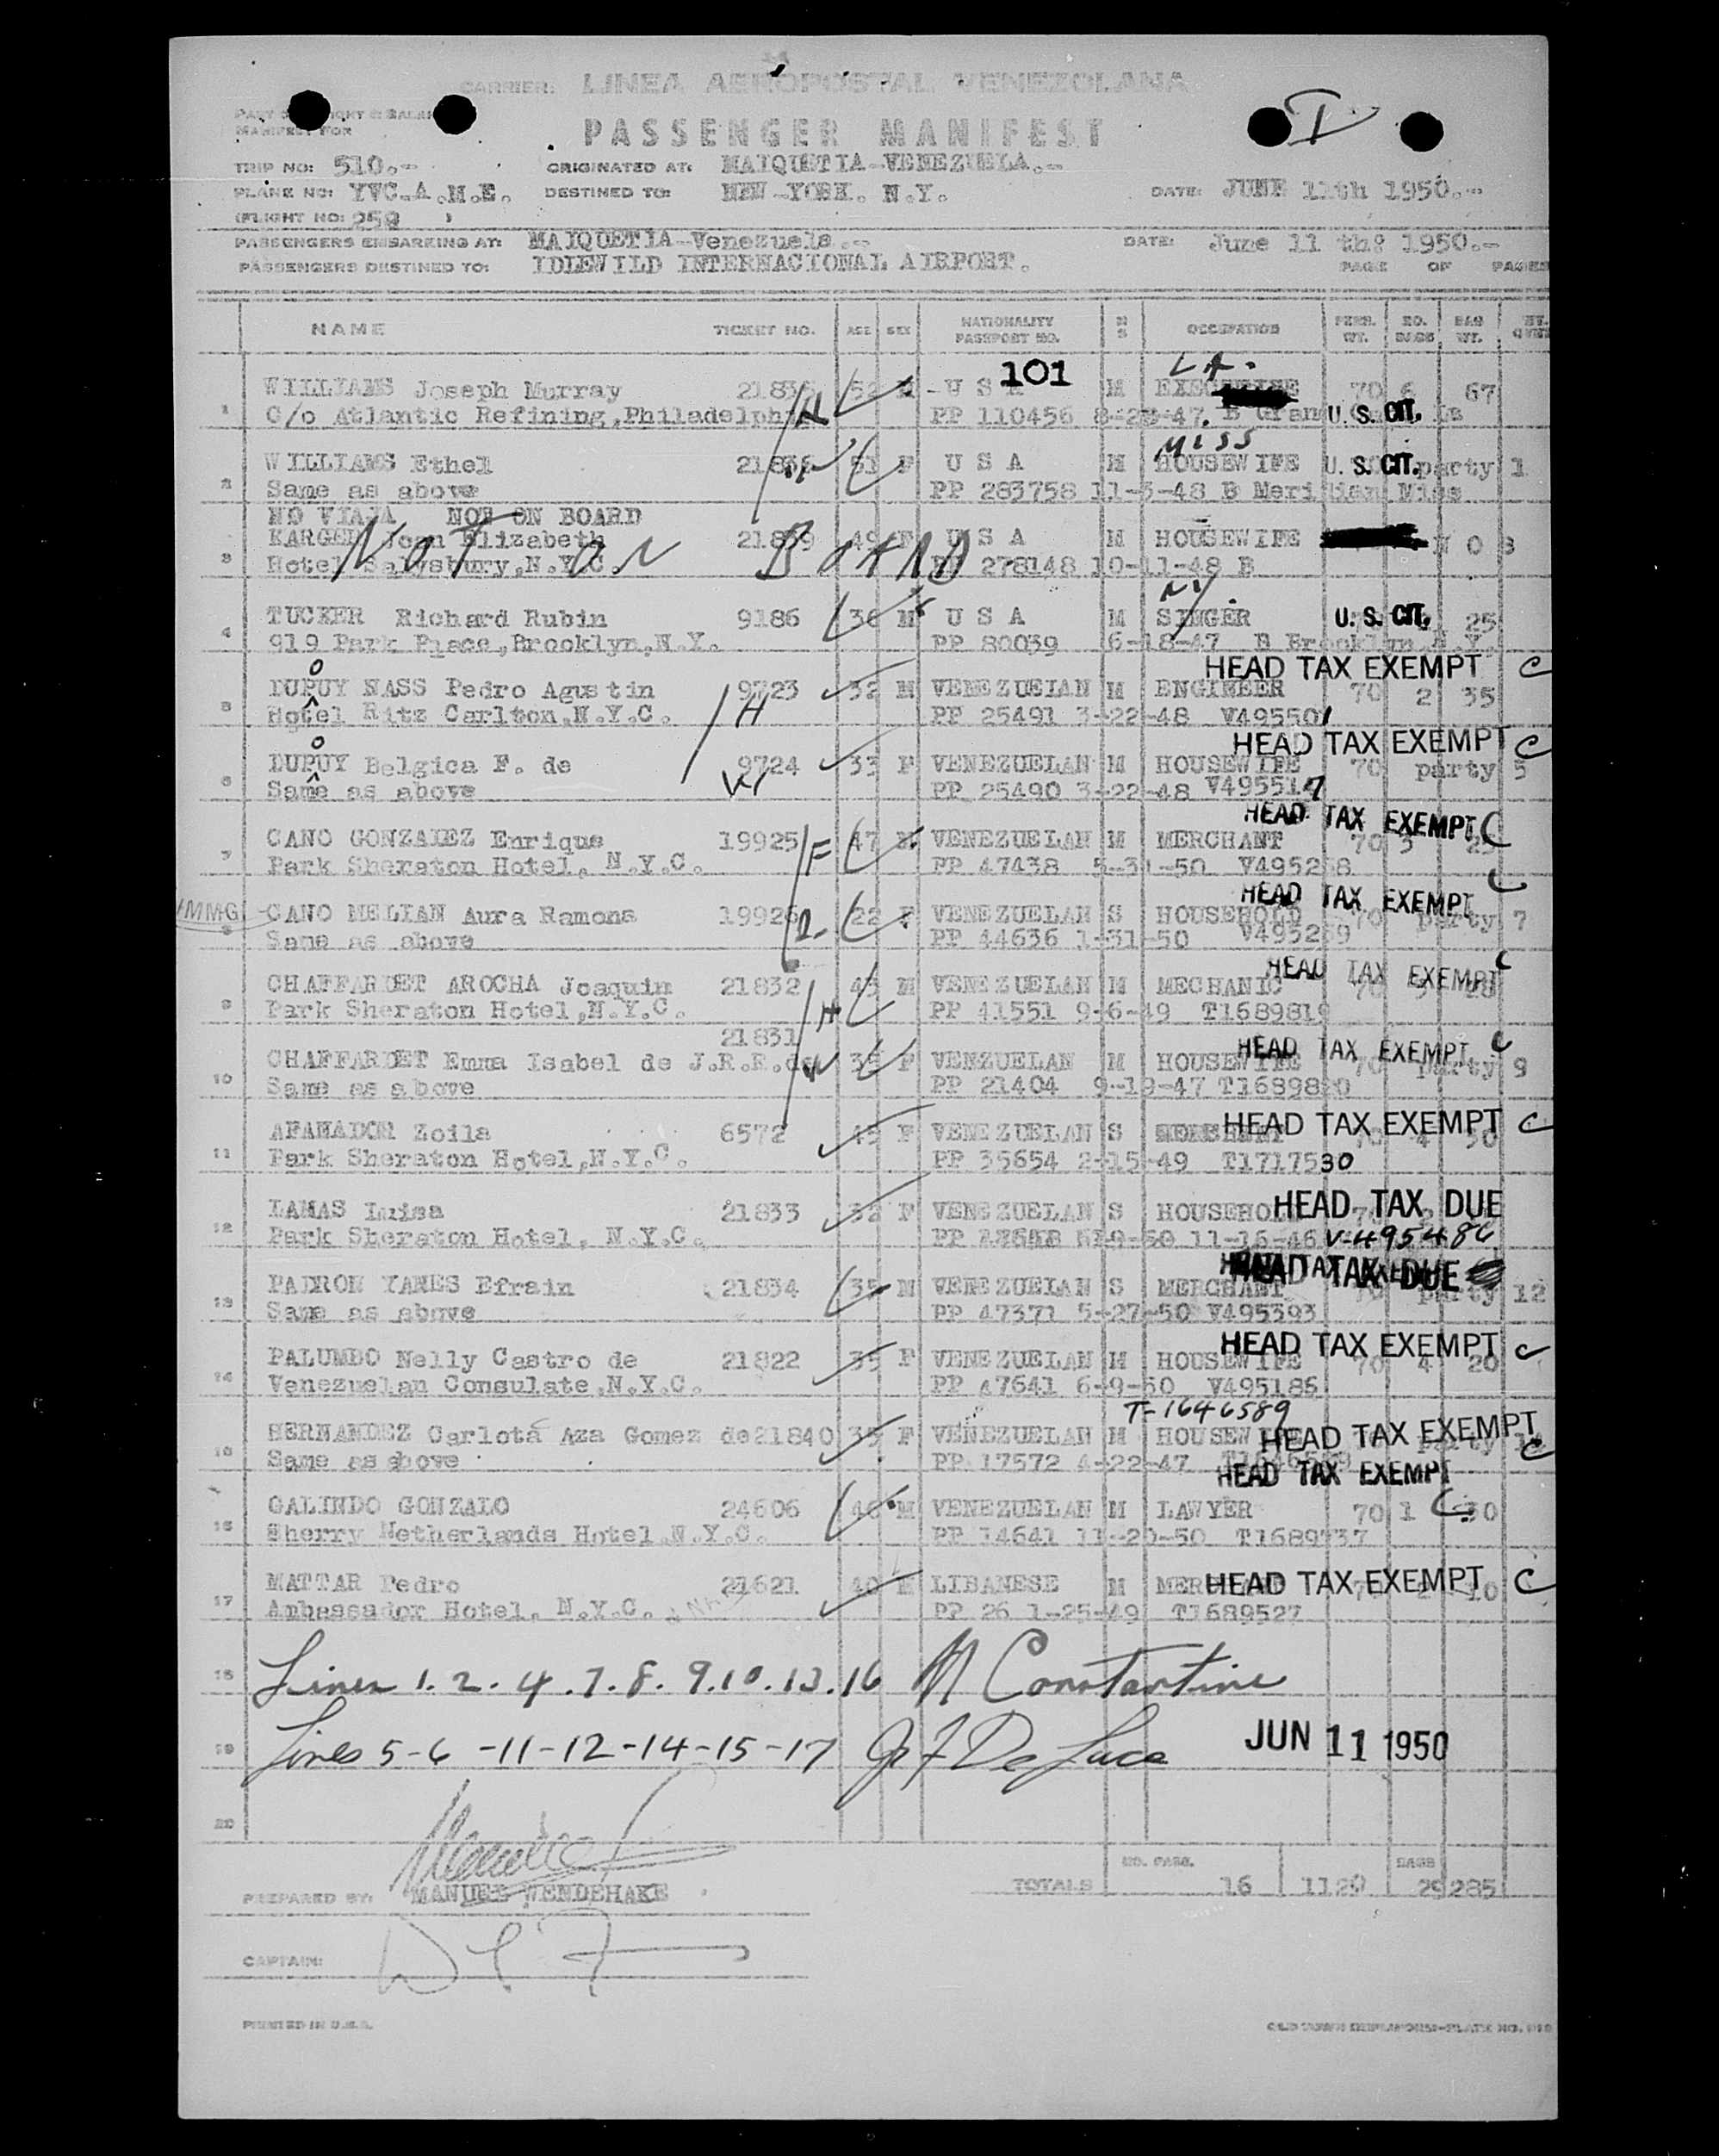 CARRIER: LINEA AEROPOSTAL VENEZOLANA
MANIFEST FOR
PASSENGER MANIFEST
I
TRIP NO: 510.-- ORIGINATED AT: MAIQUETIA-VENEZUELA.--
PLANE NO: YVC-A.M.E. DESTINED TO: NEW-YORK. N.Y. DATE: JUNE 11th 1950.--
(FLIGHT NO: 259 )
PASSENGERS EMBARKING AT: MAIQUETIA-Venezuela.-- DATE: June 11 th: 1950.--
PASSENGERS DESTINED TO: IDLEWILD INTERNACIONAL AIRPORT. PAGE OF PAGES
NAME TICKET NO. AGE SEX NATIONALITY PASSPORT NO. M S OCCUPATION PERS. WT. NO. BAGS BAG WT.
101 LA.
WILLIAMS Joseph Murray 21835 52 M U S A M 70 6 67
1 C/o Atlantic Refining,Philadelphia H PP 110456 8-28-47. B U.S. CIT.
MISS
WILLIAMS Ethel 21836 51 F U S A M HOUSEWIFE U.S. CIT. party 1
2 Same as above PP 283758 11-3-48 B Meridian Miss
NO VIAJA NOT ON BOARD
KARGED Joan Elizabeth 21839 49 F U S A M HOUSEWIFE
NOT ON BOARD
3 Hotel Salysbury,N.Y.C. PP 278148 10-11-48 B
NY.
TUCKER Richard Rubin 9186 36 M U S A M SINGER U.S. CIT. 25
4 919 Park Place,Brooklyn,N.Y. PP 80039 6-18-47 B Brooklyn N.Y.
HEAD TAX EXEMPT C
O
DUPUY NASS Pedro Agustin 9723 32 M VENEZUELAN M ENGINEER 70 2 35
5 Hotel Ritz Carlton,N.Y.C. H PP 25491 3-22-48 V495501
HEAD TAX EXEMPT C
O
DUPUY Belgica F. de 9724 33 F VENEZUELAN M HOUSEWIFE 70 party 5
6 Same as above W PP 25490 3-22-48 V495517
HEAD TAX EXEMPT C
CANO GONZALEZ Enrique 19925 F 47 M VENEZUELAN M MERCHANT 70 3 25
7 Park Sheraton Hotel, N.Y.C. PP 47438 5-31-50 V495258
HEAD TAX EXEMPT C
IMMG CANO MELIAN Aura Ramona 19926 D. 22 F VENEZUELAN S HOUSEHOLD 70 party 7
8 Same as above PP 44636 1-31-50 V495259
HEAD TAX EXEMPT C
CHAFFARDET AROCHA Joaquin 21832 43 M VENEZUELAN M MECHANIC 70
9 Park Sheraton Hotel,N.Y.C. H PP 41551 9-6-49 T1689819
21831
HEAD TAX EXEMPT C
CHAFFARDET Emma Isabel de J.R.R.de W 35 F VENZUELAN M HOUSEWIFE 70 party 9
10 Same as above PP 21404 9-19-47 T1689820
HEAD TAX EXEMPT C
AFANADOR Zoila 6572 45 F VENEZUELAN S 70 4 30
11 Park Sheraton Hotel,N.Y.C. PP 35654 2-15-49 T1717530
HEAD TAX DUE
LAMAS Luisa 21833 32 F VENEZUELAN S HOUSEHOLD
12 Park Sheraton Hotel, N.Y.C. PP 11-16-46 V-495486
HEAD TAX DUE
PADRON YANES Efrain 21834 35 M VENEZUELAN S MERCHANT party 12
13 Same as above PP 47371 5-27-50 V495393
HEAD TAX EXEMPT C
PALUMBO Nelly Castro de 21822 35 F VENEZUELAN M HOUSEWIFE 70 4 20
14 Venezuelan Consulate,N.Y.C. PP 47641 6-9-50 V495185
T-1646589
HERNANDEZ Carlota Aza Gomez de 21840 35 F VENEZUELAN M HOUSEWIFE HEAD TAX EXEMPT C
15 Same as above PP 17572 4-22-47
HEAD TAX EXEMPT
GALINDO GONZALO 24606 46 M VENEZUELAN M LAWYER 70 1 C 30
16 Sherry Netherlands Hotel,N.Y.C. PP 14641 11-20-50 T1689737
MATTAR Pedro 21621 40 M LIBANESE M HEAD TAX EXEMPT C
17 Ambassador Hotel, N.Y.C. PP 26 1-25-49 T1689527
18 Lines 1. 2. 4. 7. 8. 9. 10. 13. 16 M Constantine
19 Lines 5-6-11-12-14-15-17 J F DeLuca JUN 11 1950
20
NO. PASS. BAGS
PREPARED BY: MANUEL WENDEHAKE TOTALS 16 1120 29 285
CAPTAIN:
PRINTED IN U.S.A.